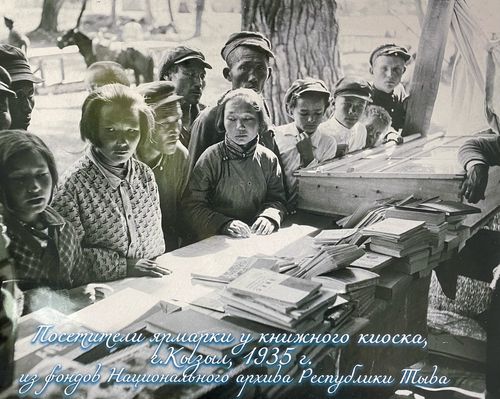 Посетители ярмарки у книжного киоска,
г.Кызыл, 1935 г.
из фондов Национального архива Республики Тыва